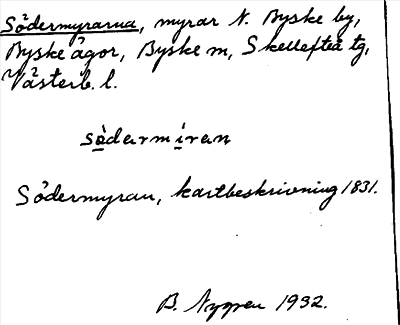 Södermyrarna, myrar N. Byske by,
Byske ägor, Byske sn, Skellefteå tg,
Västerb. l.
södarmiran
Södermyran, kartbeskrivning 1831.
B. Nygren 1932.